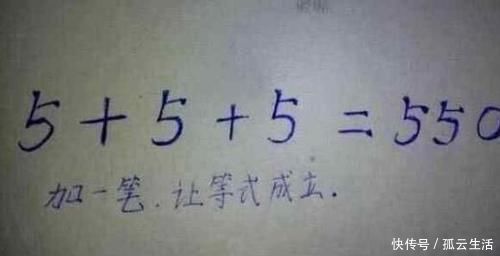 5+5+5=550
加一笔.让等式成立.
快传号/孤云生活